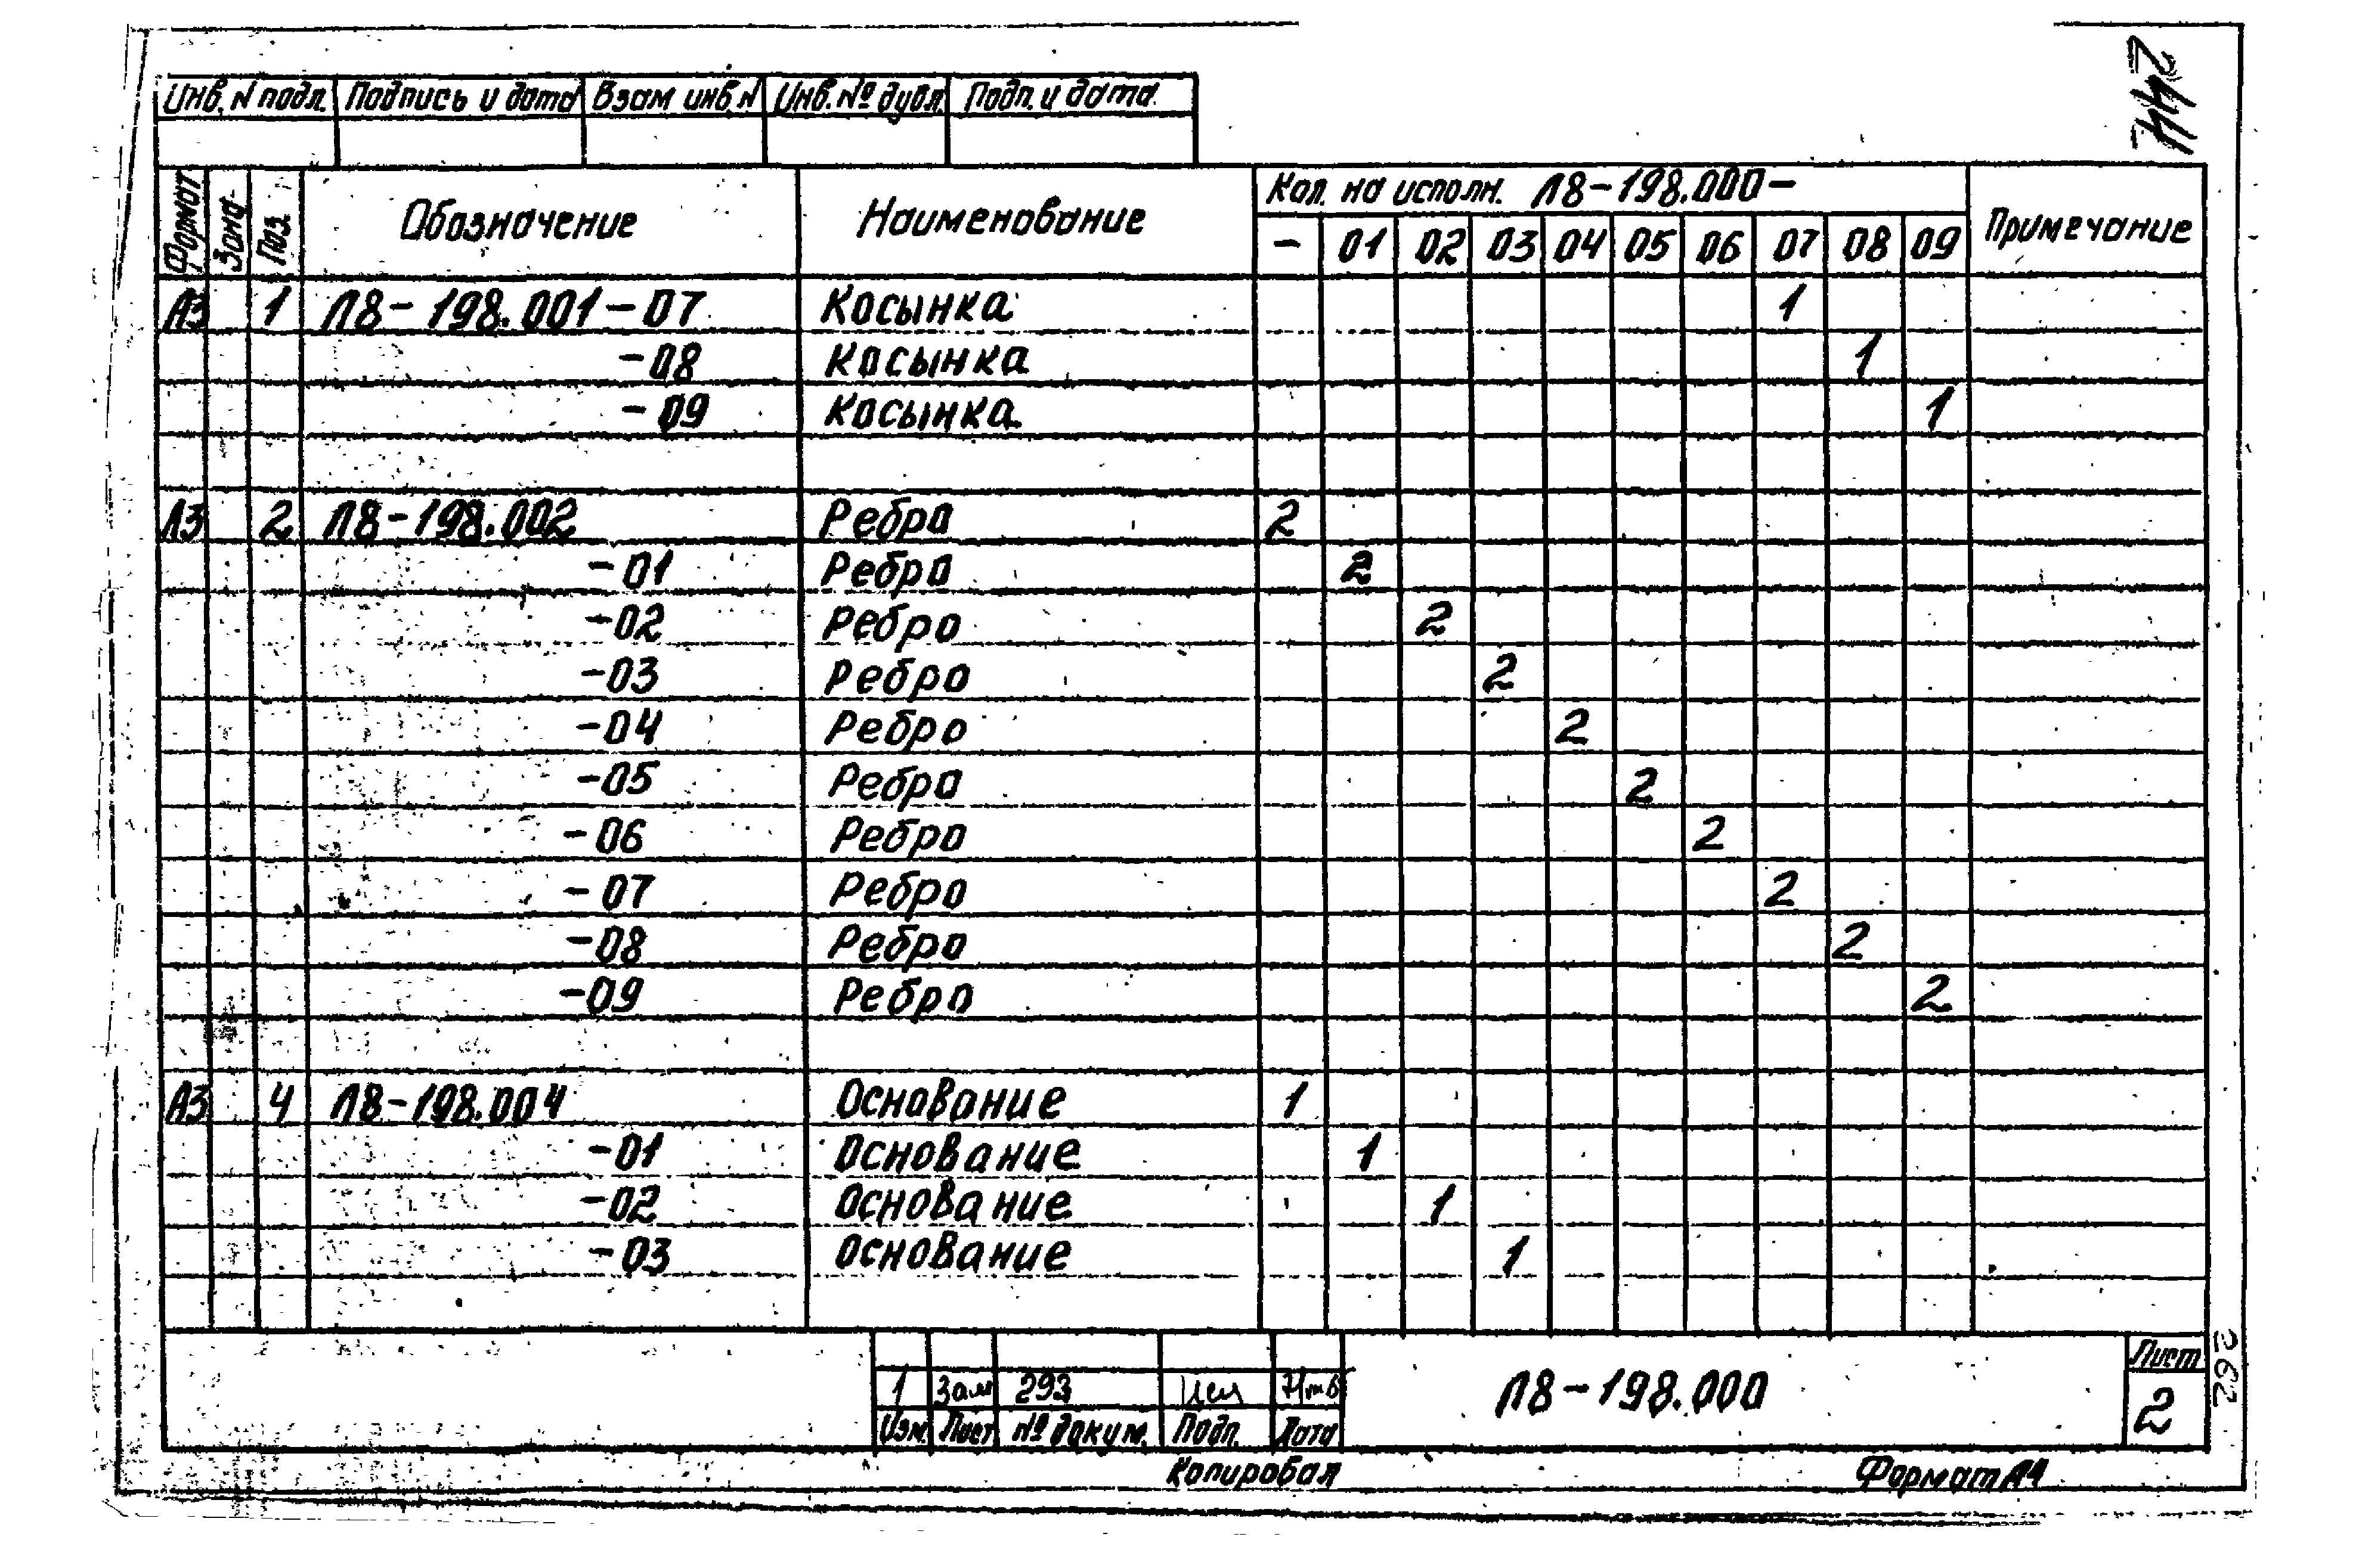 Инв. N подл. Подпись и дата Взам инв N Инв. № дубл. Подп. и дата
Формат Зона Поз. Обозначение Наименование Кол. на исполн. Л8-198.000- Примечание
- 01 02 03 04 05 06 07 08 09
А3 1 Л8-198.001-07 Косынка 1
-08 Косынка 1
-09 Косынка 1
А3 2 Л8-198.002 Ребро 2
-01 Ребро 2
-02 Ребро 2
-03 Ребро 2
-04 Ребро 2
-05 Ребро 2
-06 Ребро 2
-07 Ребро 2
-08 Ребро 2
-09 Ребро 2
А3 4 Л8-198.004 Основание 1
-01 Основание 1
-02 Основание 1
-03 Основание 1
1 Зам 293
Изм. Лист № докум. Подп. Дата
Л8-198.000
Лист
2
Копировал Формат А4
2682